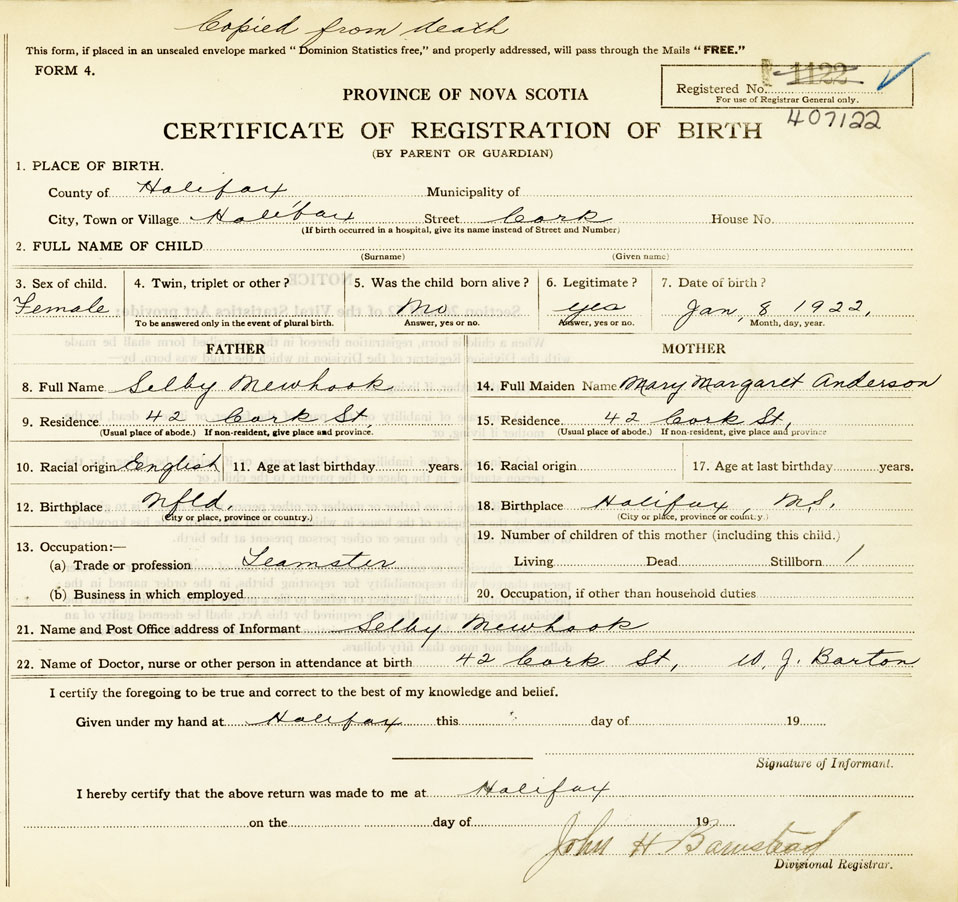 Copied from death
This form, if placed in an unsealed envelope marked "Dominion Statistics free," and properly addressed, will pass through the Mails "FREE."
FORM 4.
Registered No. 1122
For use of Registrar General only.
407122
PROVINCE OF NOVA SCOTIA
CERTIFICATE OF REGISTRATION OF BIRTH
(BY PARENT OR GUARDIAN)
1. PLACE OF BIRTH.
County of Halifax Municipality of
City, Town or Village Halifax Street Cork House No.
(If birth occurred in a hospital, give its name instead of Street and Number)
2. FULL NAME OF CHILD
(Surname) (Given name)
3. Sex of child. 4. Twin, triplet or other? 5. Was the child born alive? 6. Legitimate? 7. Date of birth?
Female No yes Jan, 8 1922,
To be answered only in the event of plural birth. Answer, yes or no. Answer, yes or no. Month, day, year.
FATHER MOTHER
8. Full Name Selby Mewhook 14. Full Maiden Name Mary Margaret Anderson
9. Residence 42 Cork St, 15. Residence 42 Cork St,
(Usual place of abode.) If non-resident, give place and province. (Usual place of abode.) If non-resident, give place and province
10. Racial origin English 11. Age at last birthday years. 16. Racial origin 17. Age at last birthday years.
12. Birthplace Nfld. 18. Birthplace Halifax, N.S.
(City or place, province or country.) (City or place, province or country.)
13. Occupation:— 19. Number of children of this mother (including this child.)
(a) Trade or profession Teamster Living Dead Stillborn 1
(b) Business in which employed 20. Occupation, if other than household duties
21. Name and Post Office address of Informant Selby Mewhook
22. Name of Doctor, nurse or other person in attendance at birth 42 Cork St, W. J. Barton
I certify the foregoing to be true and correct to the best of my knowledge and belief.
Given under my hand at Halifax this day of 19
Signature of Informant.
I hereby certify that the above return was made to me at Halifax
on the day of 19
John H Barnstead
Divisional Registrar.